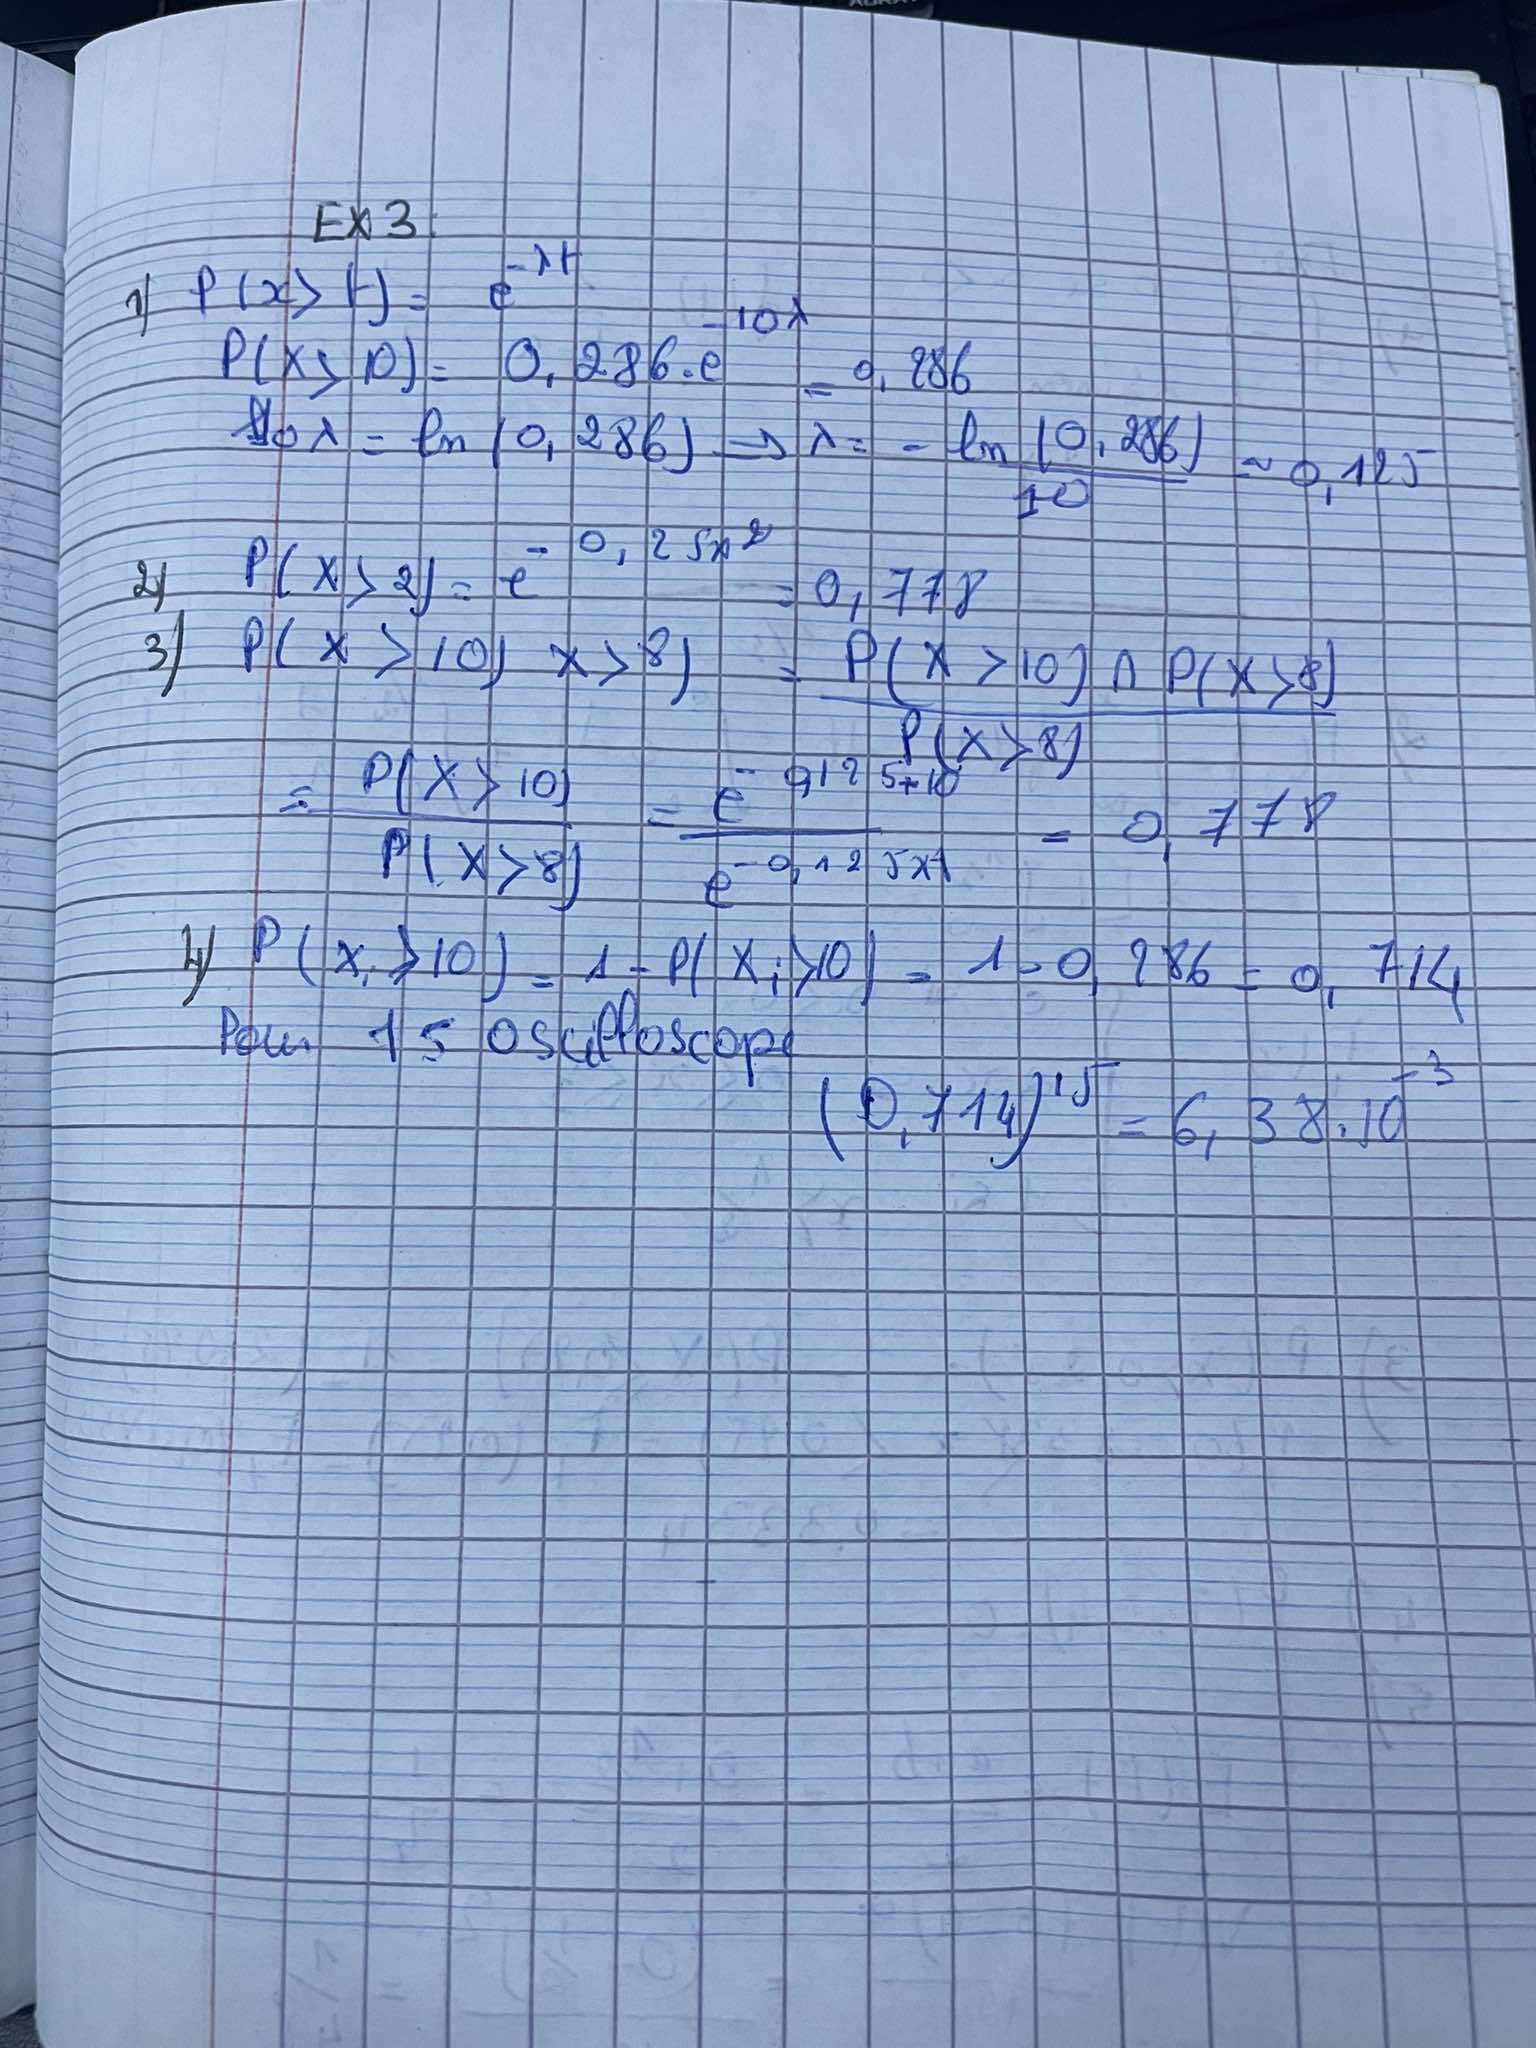 EX 3:
1) P(x> t) = e^-λt
P(X> 10) = 0,286. e^-10λ = 0,286
10 λ = ln (0,286) → λ = - ln (0,286) / 10 ≈ 0,125
2) P(X > 2) = e^-0,25x2 = 0,778
3) P( X > 10) X > 8) = P(X > 10) ∩ P(X>8) / P(X > 8)
= P(X > 10) / P(X > 8) = e^-0,125*10 / e^-0,125x1 = 0,778
4) P(Xi > 10) = 1 - P(Xi > 10) = 1 - 0,286 = 0,714
Pour 15 oscilloscope
(0,714)^15 = 6,38.10^-3